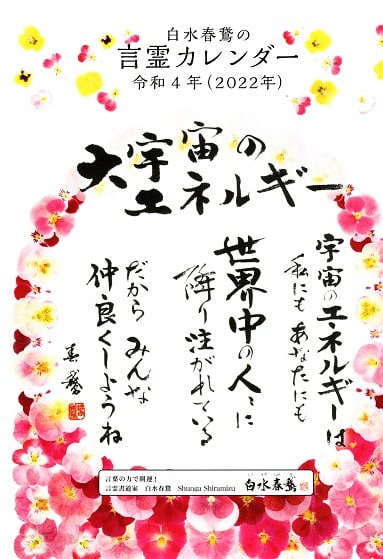 白水春鵞の
言霊カレンダー
令和4年(2022年)
大宇宙の
エネルギー
宇宙のエネルギーは
私にもあなたにも
世界中の人々に
降り注がれている
だから みんな
仲良くしようね
春鵞
言葉の力で開運!
言霊書道家 白水春鵞 Shunga Shiramizu
白水春鵞